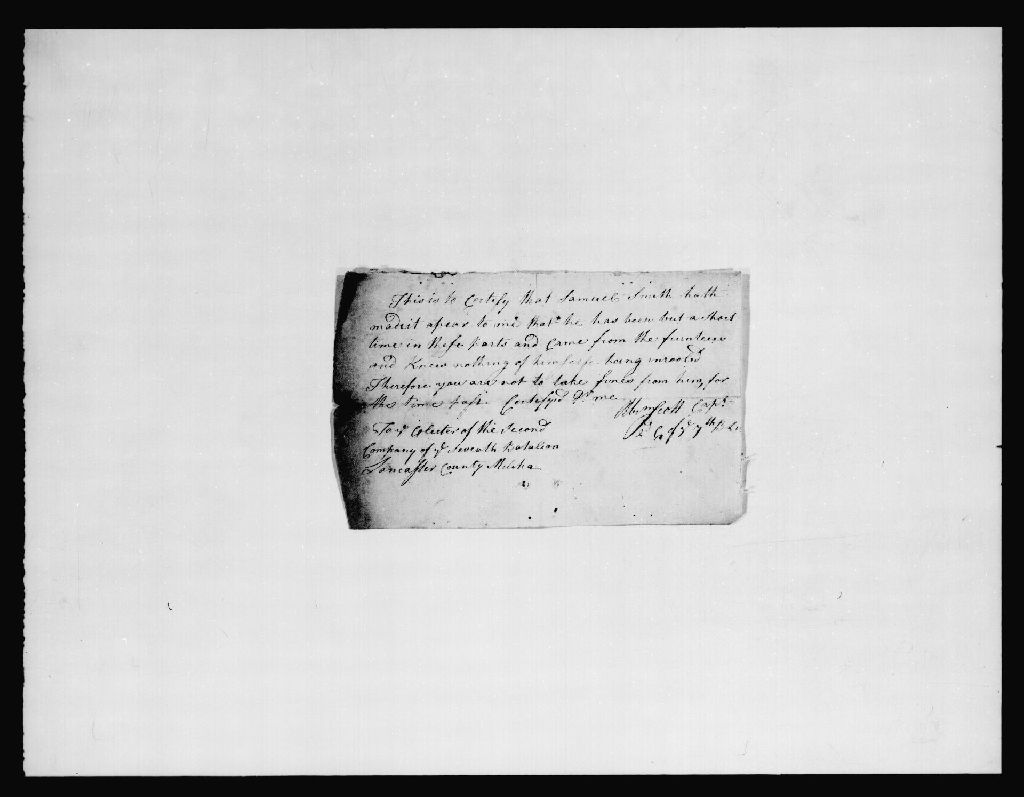 This is to Certify that Samuel Smith hath
madeit apear to me that he has been but a short
time in these parts and came from the frunteers
and Knew nothing of himself being inrooled
Therefore you are not to take fines from him for
this time past Certifyd Pr me
John Scott Capt
2d Co of ye 7th B L C
To ye Colecter of the Second
Company of ye Seventh Batalian
Lancaster County Milisha